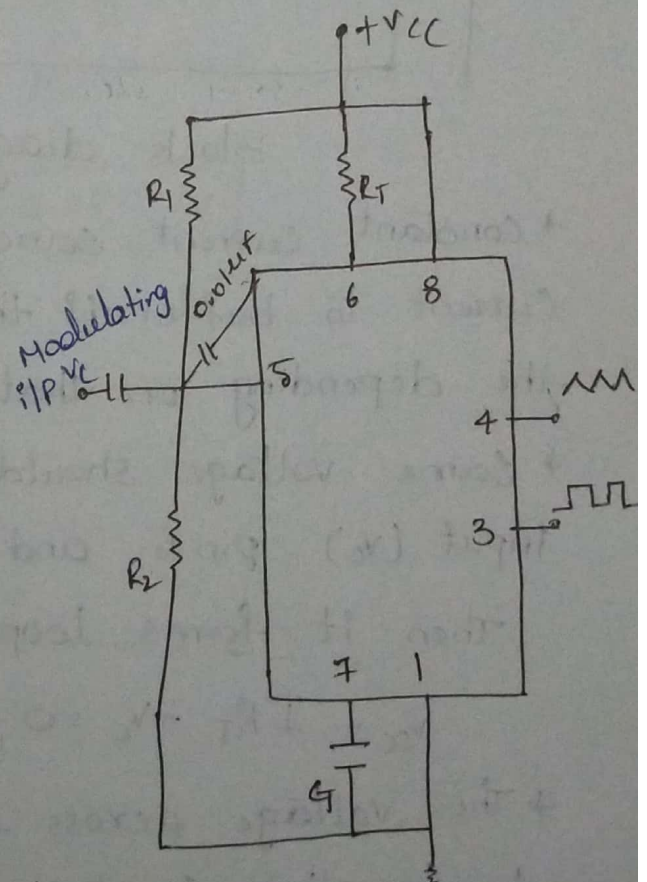 +VCC
R1
RT
0.01μf
6
8
Modulating
i/P Vc
5
4
3
R2
7
1
CT